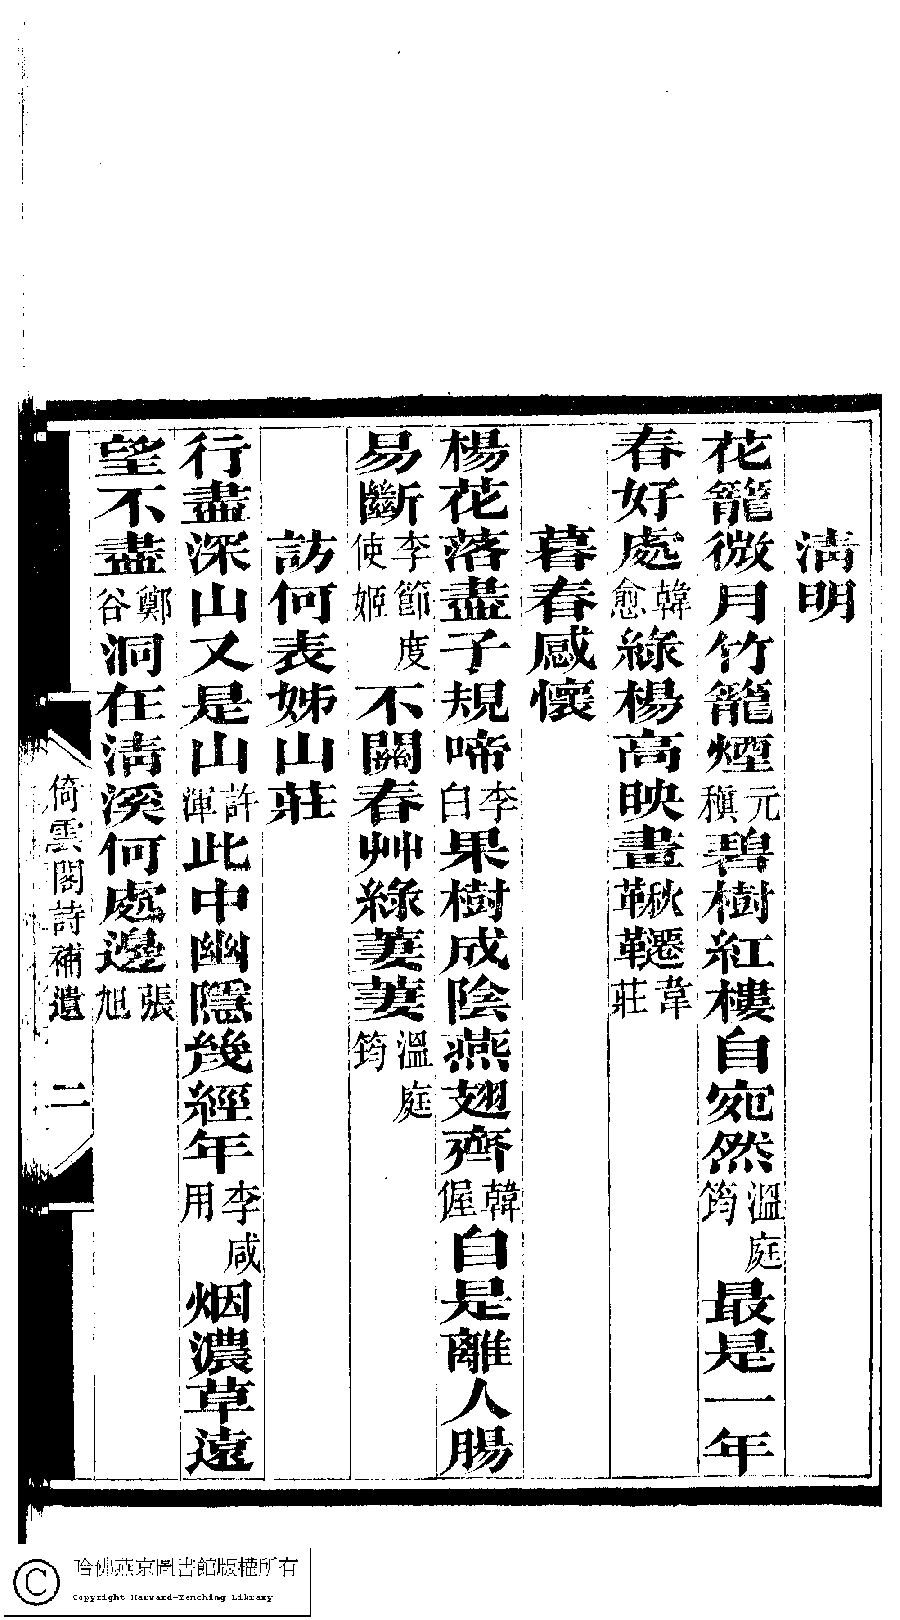 清明
花籠微月竹籠煙元稹碧樹紅樓自宛然溫庭筠最是一年
春好處韓愈綠楊高映畫鞦韆韋莊
暮春感懷
楊花落盡子規啼李白果樹成陰燕翅齊韓偓自是離人腸
易斷李節度使姬不關春艸綠萋萋溫庭筠
訪何表姊山莊
行盡深山又是山許渾此中幽隱幾經年李咸用烟濃草遠
望不盡鄭谷洞在清溪何處邊張旭
倚雲閣詩補遺 二
哈佛燕京圖書館版權所有
Copyright Harvard-Yenching Library